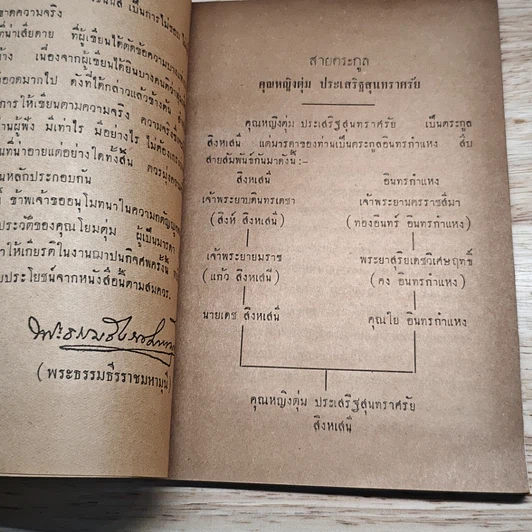 เป็นการไม่
ขาดความจริง
ที่น่าเสียดาย ที่ผู้เขียนได้ตัดข้อความบาง
เนื่องจากผู้เขียนได้ยินบางคน
ดังที่ได้กล่าวแล้วข้างต้น
การให้เขียนตามความจริง
มีเท่าไร มีอย่างไร ไม่ต้อง
ที่น่าอายแต่อย่างใดทั้งสิ้น
หลักประกอบกัน
ข้าพเจ้าขออนุโมทนาในความกตัญญู
ประวัติของคุณโยมตุ่ม ผู้เป็นมารดา
ให้เกียรติในงานฌาปนกิจศพครั้งนี้
ประโยชน์จากหนังสือนี้ตามสมควร.
(พระธรรมธีรราชมหามุนี
สายตระกูล
คุณหญิงตุ่ม ประเสริฐสุนทราศรัย
คุณหญิงตุ่ม ประเสริฐสุนทราศรัย เป็นตระกูล
สิงหเสนี แต่มารดาของท่านเป็นตระกูลอินทรกำแหง สืบ
สายสัมพันธ์กันมาดังนี้:-
สิงหเสนี อินทรกำแหง
เจ้าพระยาบดินทรเดชา เจ้าพระยานครราชสีมา
(สิงห์ สิงหเสนี) (ทองอินทร์ อินทรกำแหง)
เจ้าพระยายมราช พระยาสุริยเดชวิเศษฤทธิ์
(แก้ว สิงหเสนี) (คง อินทรกำแหง)
นายเดช สิงหเสนี คุณใย อินทรกำแหง
คุณหญิงตุ่ม ประเสริฐสุนทราศรัย
สิงหเสนี